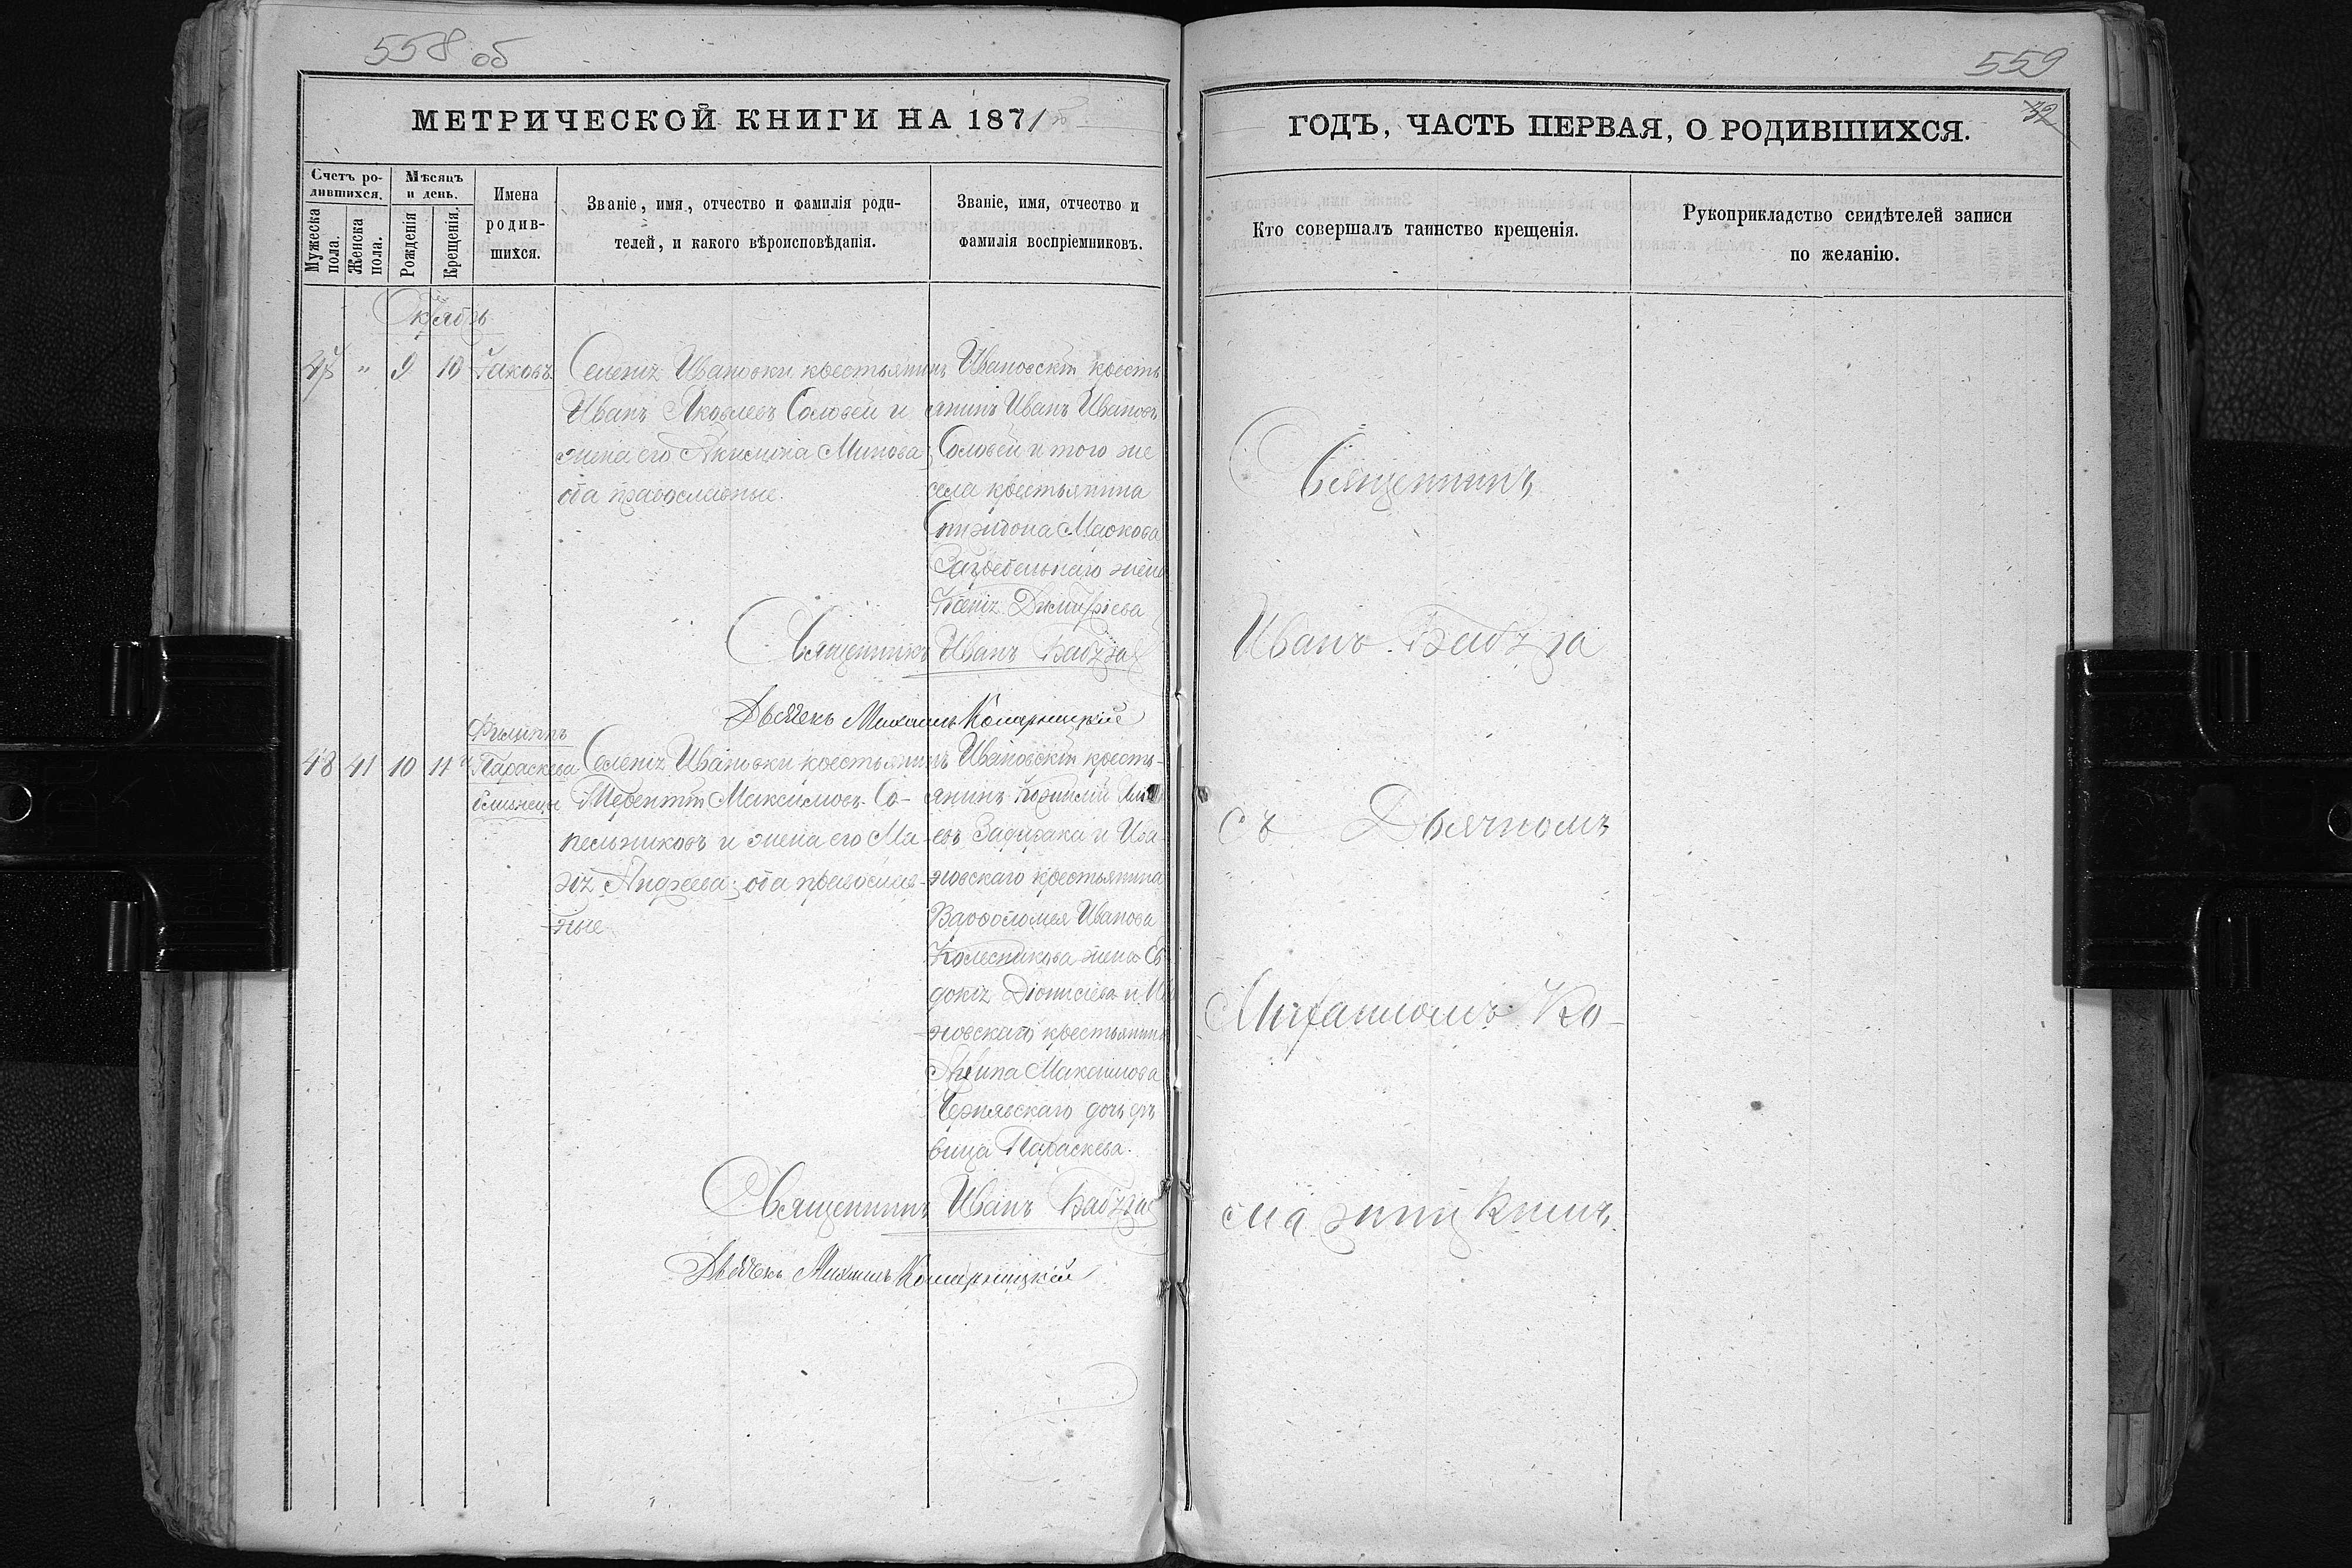 558 об
МЕТРИЧЕСКОЙ КНИГИ НА 1871
Счетъ родившихся.
Мѣсяцъ и день.
Имена родившихся.
Званіе, имя, отчество и фамилія роди-
телей, и какого вѣроисповѣданія.
Званіе, имя, отчество и
фамилія воспріемниковъ.
Мужеска пола.
Женска пола.
Рожденія
Крещенія.
Октябрь
47 " 9 10 Іаковъ
Селенія Ивановки крестьянинъ
Иванъ Яковлевъ Соловей и
жена его Акилина Минова;
оба православные.
Ивановскій кресть
янинъ Иванъ Ивановъ
Соловей и того же
села крестьянина
Спиридона Маркова
Загребельнаго жена
Ксенія Димитріева
Священникъ Иванъ
Дьячекъ Михаилъ Комарницкій
48 41 10 11
Филиппъ
Параскева
близнецы
Селенія Ивановки крестьянинъ
Терентій Максимовъ Со-
пельниковъ и жена его Ма-
рія Андреева; оба православ-
ные
Ивановскій кресть-
янинъ
евъ Задирака и Ива-
новскаго крестьянина
Варфоломея Ивановa
Колесникова жена Ев
докія Діонисіева и
новскаго крестьянина
Максимова
Чернявскаго дочь дѣ
вица Параскева.
Священникъ Иванъ
Дьячекъ Михаилъ Комарницкій
559
32
ГОДЪ, ЧАСТЬ ПЕРВАЯ, О РОДИВШИХСЯ.
Кто совершалъ таинство крещенія.
Рукоприкладство свидѣтелей записи
по желанію.
Священникъ
Иванъ
съ Дьячкомъ
Михаиломъ Ко-
марницкимъ.